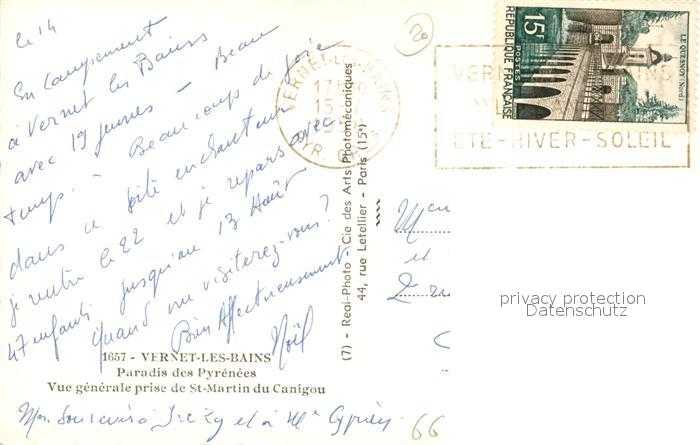 le 14
En campement
à Vernet les Bains
avec 19 jeunes - Beau
temps. Beaucoup de joie
dans ce site enchanteur
je rentre le 22 et je repars avec
47 enfants jusqu'au 13 Août
Quand me visiterez-vous?
Bien Affectueusement
Noël
1657 - VERNET-LES-BAINS
Paradis des Pyrénées
Vue générale prise de St-Martin du Canigou
Mon souvenir à et à Me
66
(7) - Real-Photo - Cie des Arts Photomécaniques
44, rue Letellier - Paris (15e)
20
VERNET-LES-BAINS
17H
15
PYR. OR.
VERNET BAINS
ETE-HIVER-SOLEIL
REPUBLIQUE FRANÇAISE
15F
POSTES
LE QUESNOY (Nord)
et
2 r
privacy protection
Datenschutz